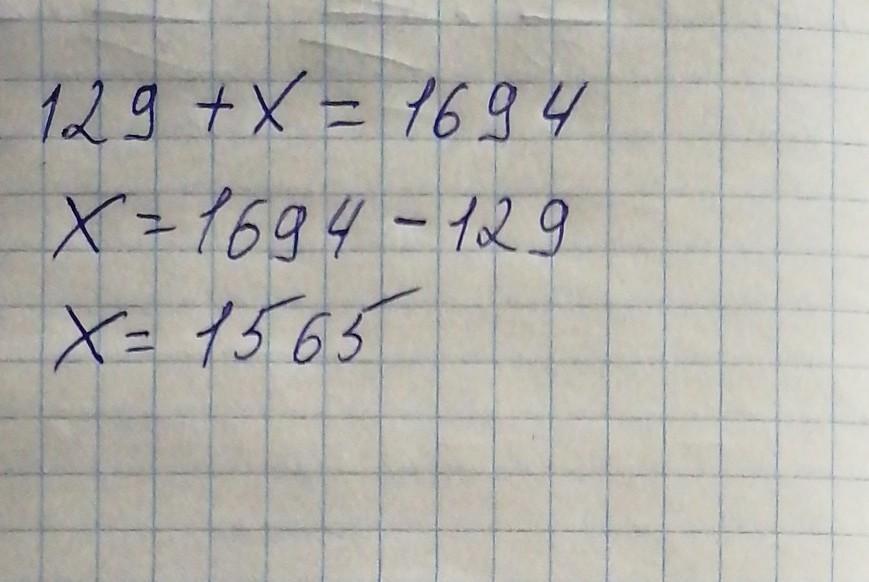 129 + x = 1694
x = 1694 - 129
x = 1565